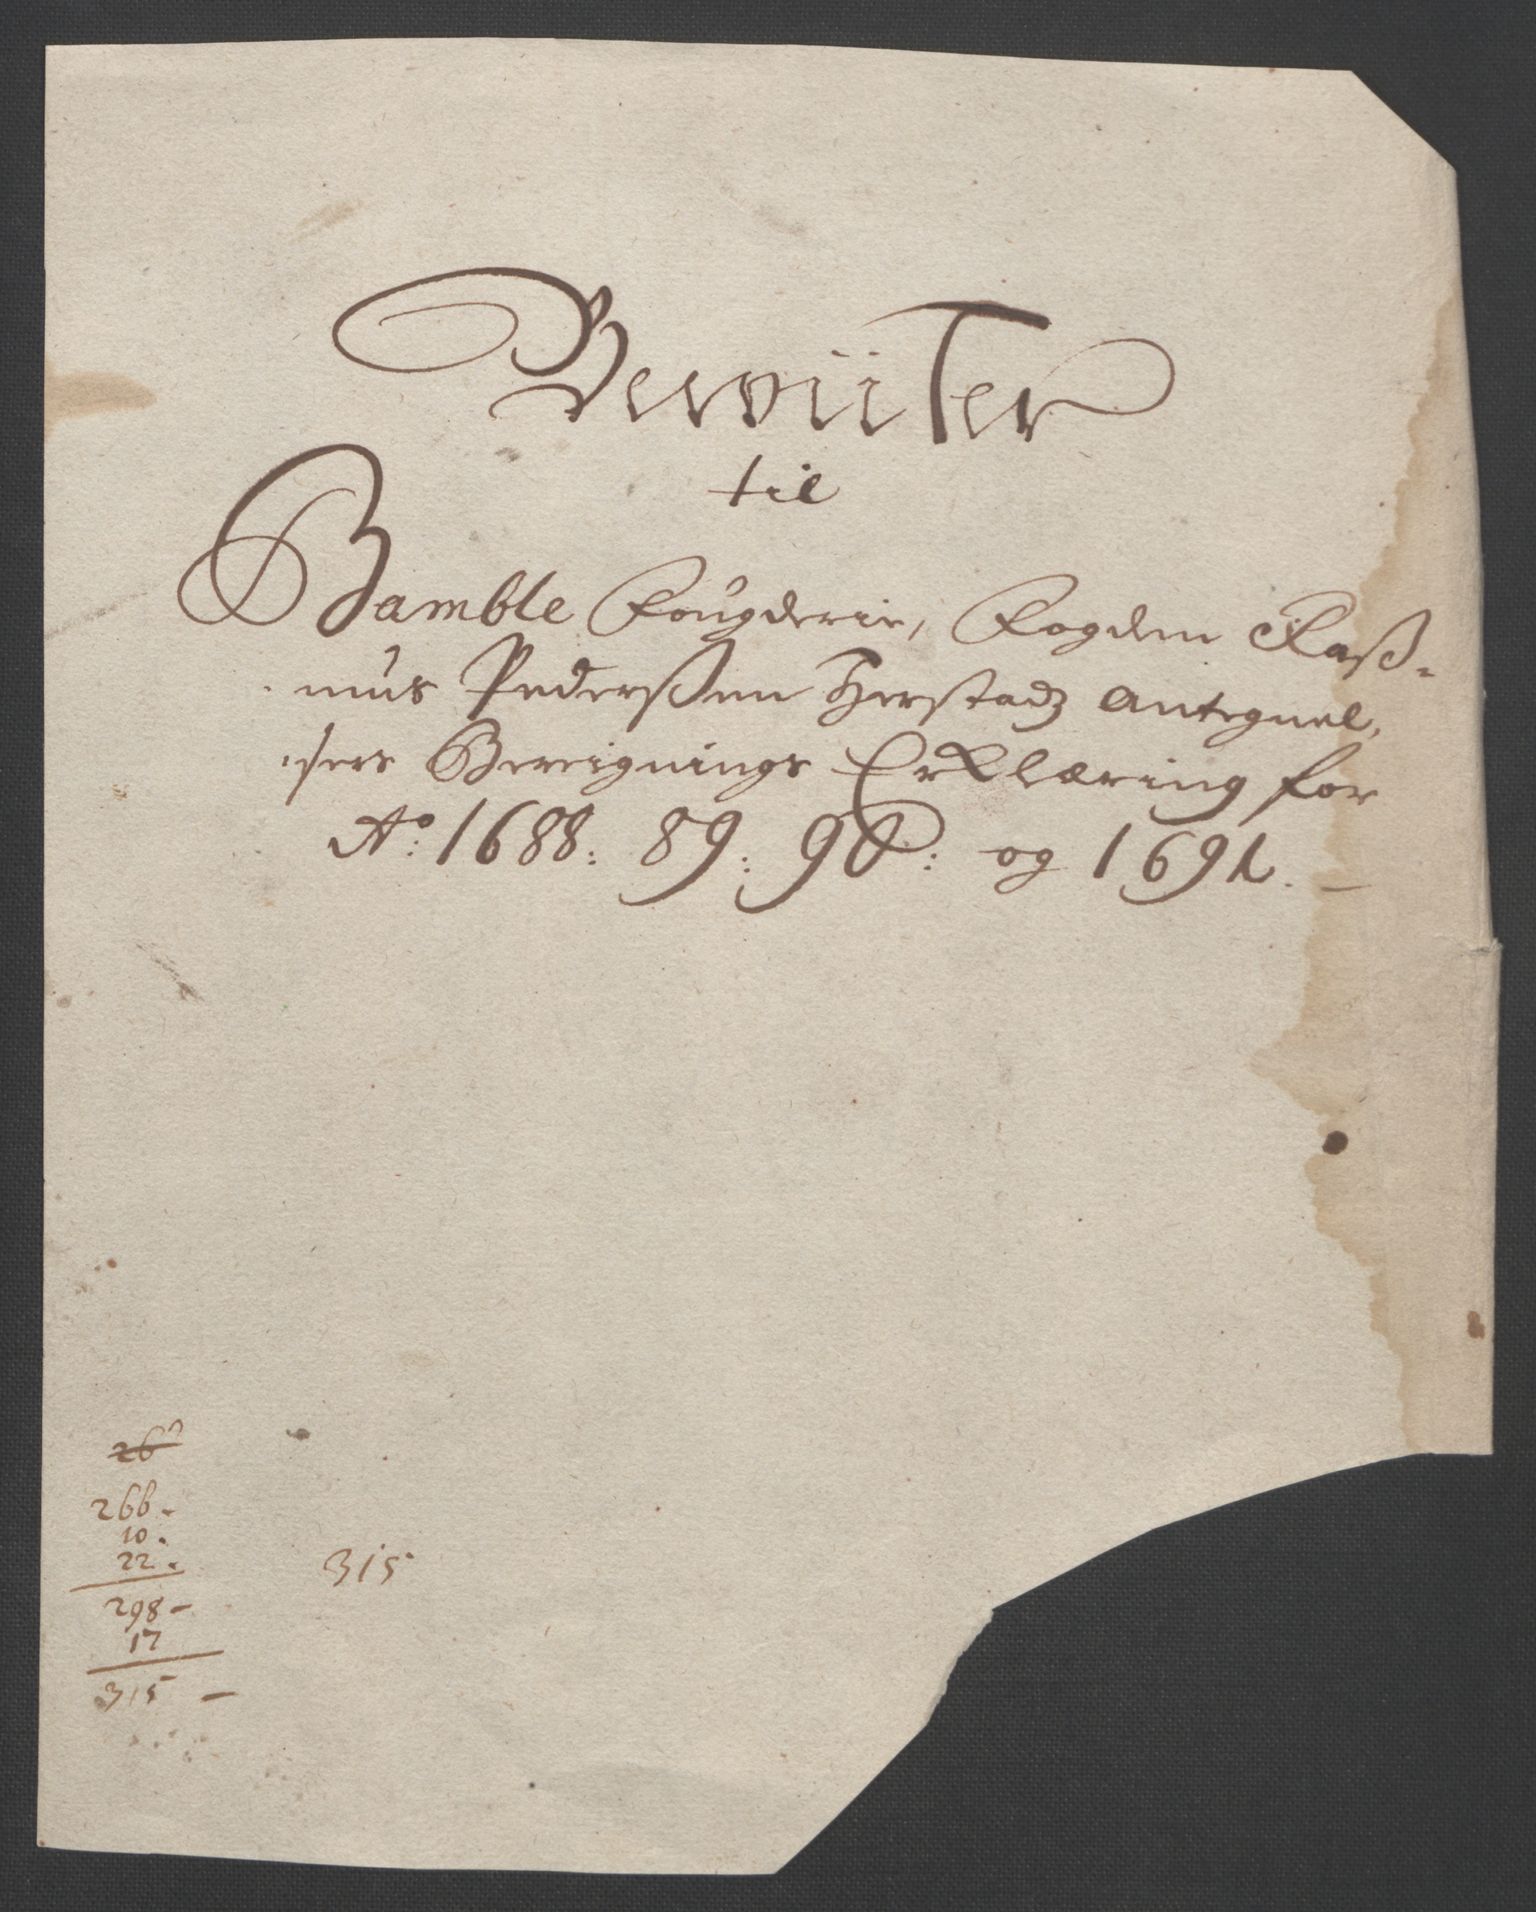 BewiiTer
til
Bamble Fougderie, Fogden Raß-
mus Pederßen Herstadz Antegnel,
sers Bereignings Erklæring for
Ao: 1688: 89: 90: og 1691. –
26
266.
10.
22.
298 –
17
315 –
315